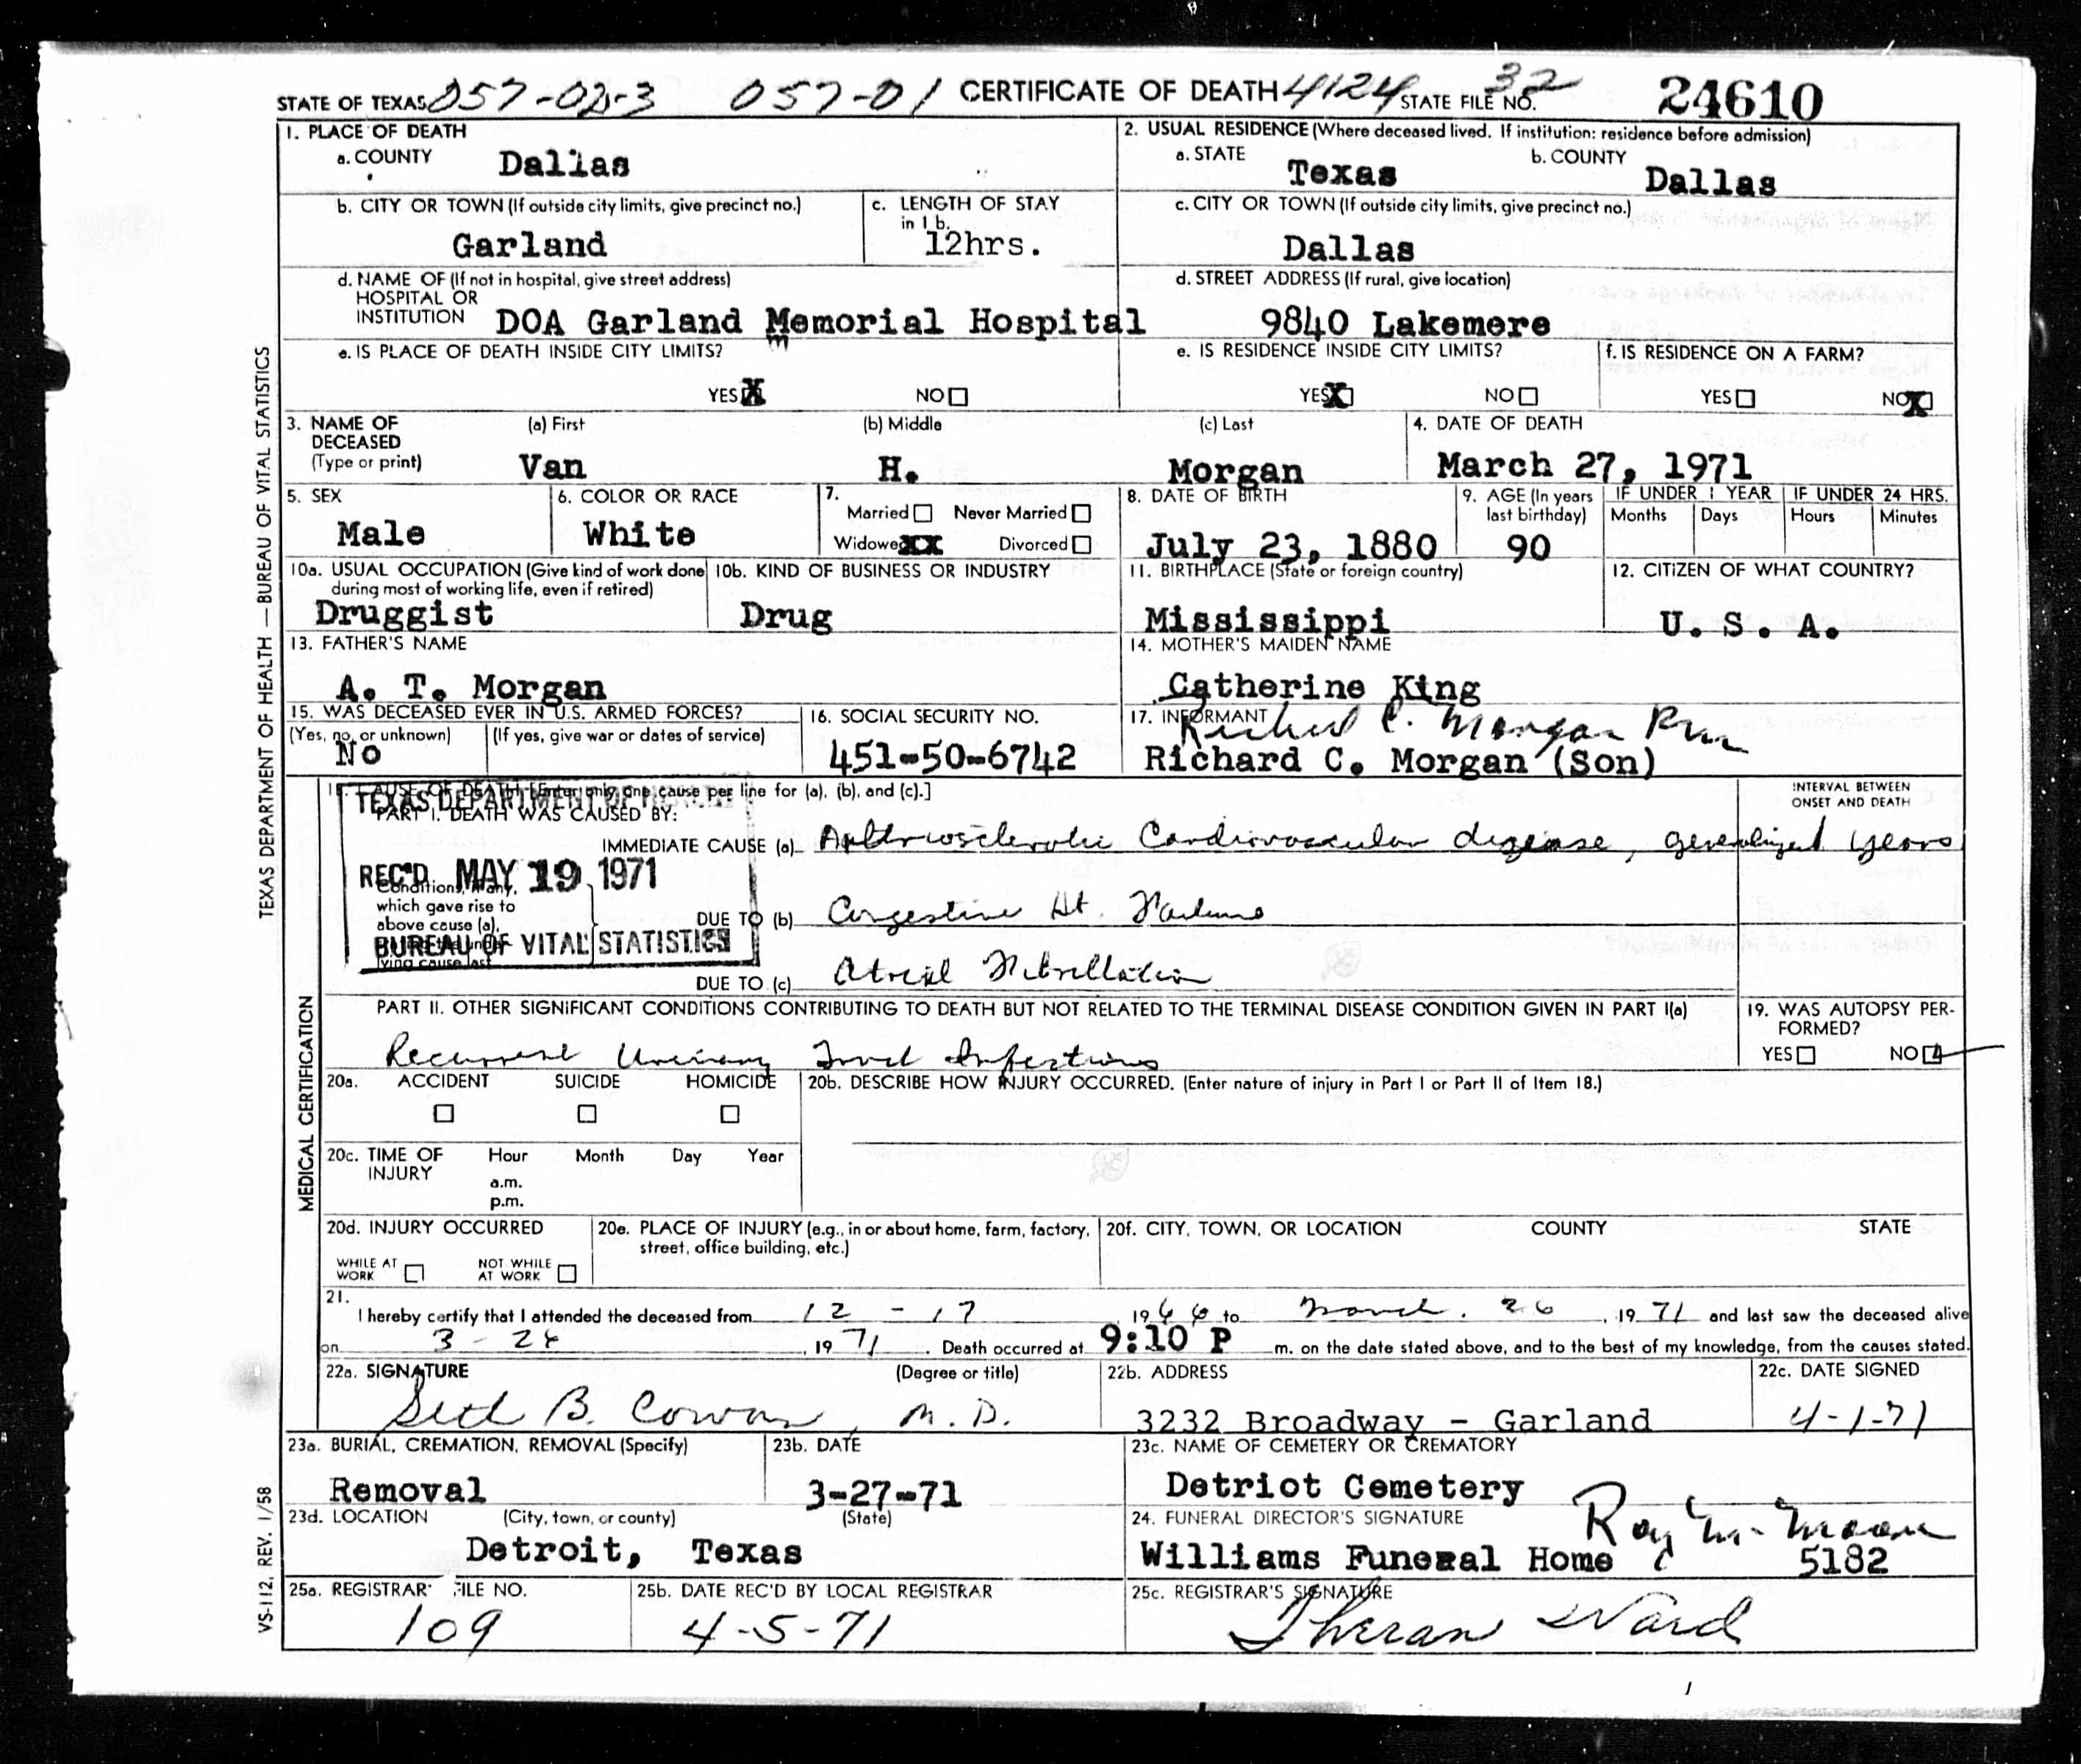 STATE OF TEXAS 057-02-3 057-01 CERTIFICATE OF DEATH 4124 STATE FILE NO. 32 24610
1. PLACE OF DEATH
a. COUNTY Dallas
2. USUAL RESIDENCE (Where deceased lived. If institution: residence before admission)
a. STATE Texas b. COUNTY Dallas
b. CITY OR TOWN (If outside city limits, give precinct no.) Garland
c. LENGTH OF STAY in 1 b. 12hrs.
c. CITY OR TOWN (If outside city limits, give precinct no.) Dallas
d. NAME OF (If not in hospital, give street address)
HOSPITAL OR
INSTITUTION DOA Garland Memorial Hospital
d. STREET ADDRESS (If rural, give location)
9840 Lakemere
e. IS PLACE OF DEATH INSIDE CITY LIMITS?
YES X NO
e. IS RESIDENCE INSIDE CITY LIMITS?
YES X NO
f. IS RESIDENCE ON A FARM?
YES NO X
3. NAME OF DECEASED (Type or print)
(a) First (b) Middle (c) Last
Van H. Morgan
4. DATE OF DEATH
March 27, 1971
5. SEX
Male
6. COLOR OR RACE
White
7.
Married Never Married
Widowed XX Divorced
8. DATE OF BIRTH
July 23, 1880
9. AGE (In years last birthday)
90
IF UNDER 1 YEAR IF UNDER 24 HRS.
Months Days Hours Minutes
10a. USUAL OCCUPATION (Give kind of work done
during most of working life, even if retired)
Druggist
10b. KIND OF BUSINESS OR INDUSTRY
Drug
11. BIRTHPLACE (State or foreign country)
Mississippi
12. CITIZEN OF WHAT COUNTRY?
U. S. A.
13. FATHER'S NAME
A. T. Morgan
14. MOTHER'S MAIDEN NAME
Catherine King
15. WAS DECEASED EVER IN U.S. ARMED FORCES?
(Yes, no, or unknown) (If yes, give war or dates of service)
No
16. SOCIAL SECURITY NO.
451-50-6742
17. INFORMANT Richard C. Morgan
Richard C. Morgan (Son)
18. CAUSE OF DEATH [Enter only one cause per line for (a), (b), and (c).]
INTERVAL BETWEEN
ONSET AND DEATH
TEXAS DEPARTMENT OF HEALTH
PART I. DEATH WAS CAUSED BY:
IMMEDIATE CAUSE (a) Arteriosclerotic Cardiovascular disease, generalized years
REC'D MAY 19 1971
Conditions, if any,
which gave rise to
above cause (a),
DUE TO (b) Congestive Ht. Failure
BUREAU OF VITAL STATISTICS
lying cause last
DUE TO (c) Atrial Fibrillation
PART II. OTHER SIGNIFICANT CONDITIONS CONTRIBUTING TO DEATH BUT NOT RELATED TO THE TERMINAL DISEASE CONDITION GIVEN IN PART I(a)
Recurrent Urinary Tract Infections
19. WAS AUTOPSY PERFORMED?
YES NO
20a. ACCIDENT SUICIDE HOMICIDE
20b. DESCRIBE HOW INJURY OCCURRED. (Enter nature of injury in Part I or Part II of Item 18.)
20c. TIME OF INJURY Hour Month Day Year
a.m.
p.m.
20d. INJURY OCCURRED
WHILE AT WORK NOT WHILE AT WORK
20e. PLACE OF INJURY (e.g., in or about home, farm, factory,
street, office building, etc.)
20f. CITY, TOWN, OR LOCATION COUNTY STATE
21.
I hereby certify that I attended the deceased from 12 - 17, 1966 to March. 26, 1971 and last saw the deceased alive
on 3 - 26, 1971. Death occurred at 9:10 P m. on the date stated above, and to the best of my knowledge, from the causes stated.
22a. SIGNATURE (Degree or title)
Seth B. Cowan, M.D.
22b. ADDRESS
3232 Broadway - Garland
22c. DATE SIGNED
4-1-71
23a. BURIAL, CREMATION, REMOVAL (Specify)
Removal
23b. DATE
3-27-71
23c. NAME OF CEMETERY OR CREMATORY
Detriot Cemetery
23d. LOCATION (City, town, or county) (State)
Detroit, Texas
24. FUNERAL DIRECTOR'S SIGNATURE Roy M. Moore
Williams Funeral Home 5182
25a. REGISTRAR' FILE NO.
109
25b. DATE REC'D BY LOCAL REGISTRAR
4-5-71
25c. REGISTRAR'S SIGNATURE
Theran Ward
TEXAS DEPARTMENT OF HEALTH — BUREAU OF VITAL STATISTICS
MEDICAL CERTIFICATION
VS-112, REV. 1/58